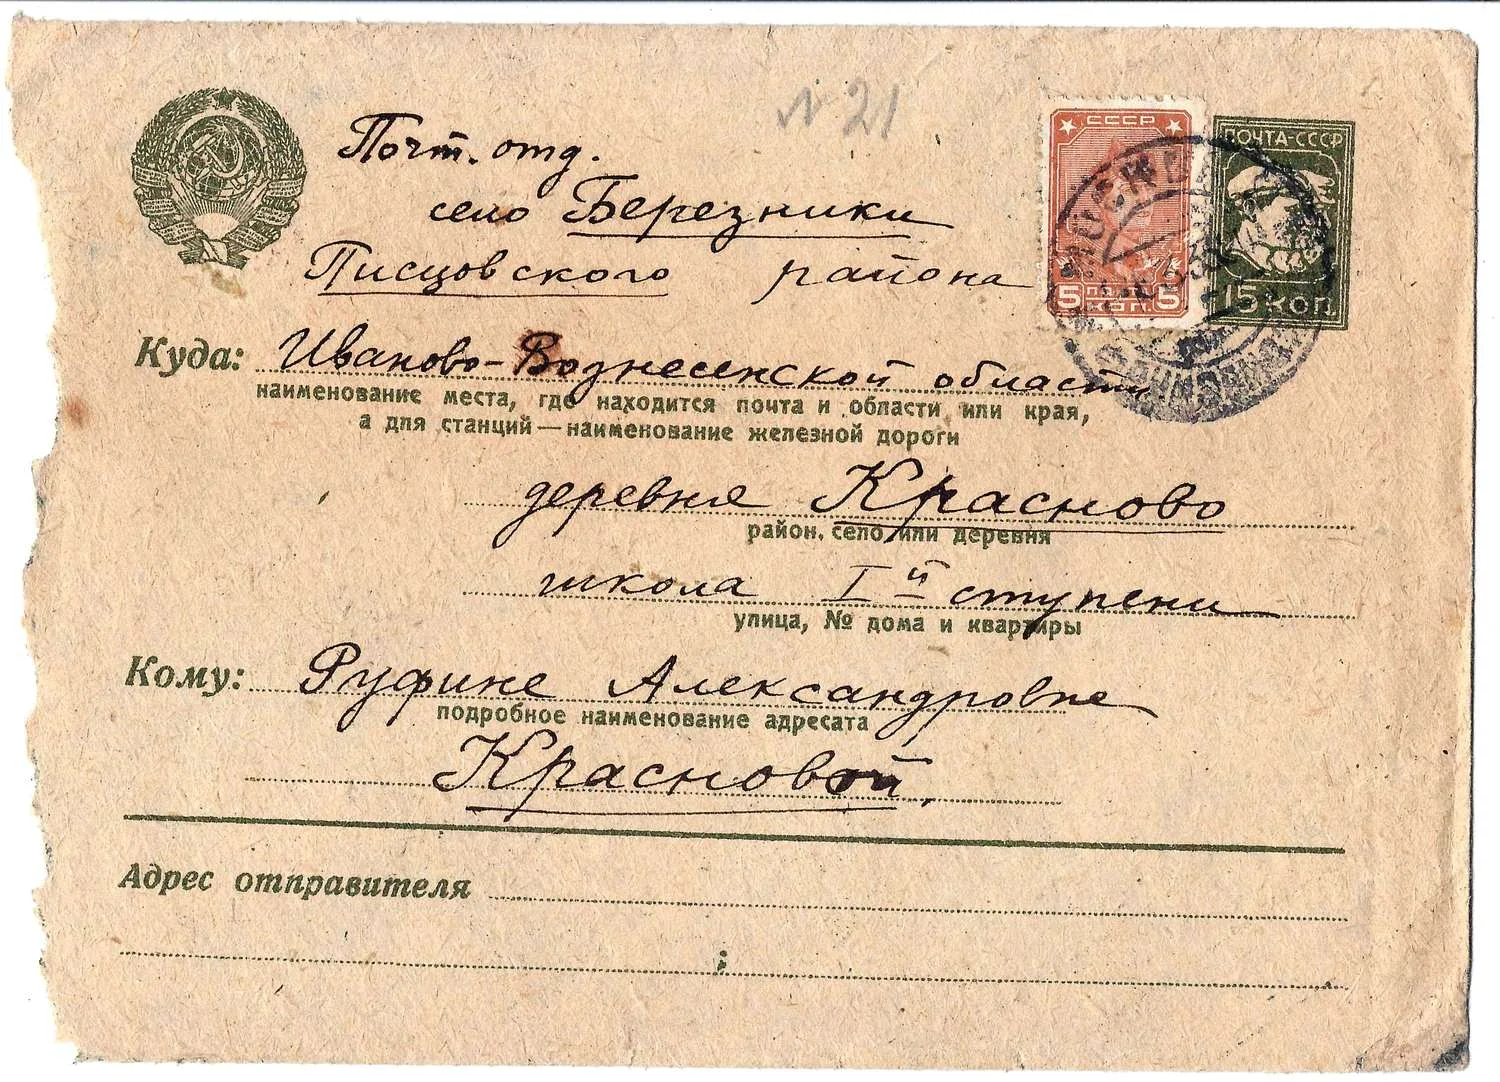 № 21
Почт. отд.
село Березники
Писцовского района
СССР
5 ПОЧ. КОП. 5
ПОЧТА-СССР
15 КОП.
МОСКВА
Куда: Иваново-Вознесенской области
наименование места, где находится почта и области или края,
а для станций — наименование железной дороги
деревня Красново
район, село или деревня
школа Iй ступени
улица, № дома и квартиры
Кому: Руфине Александровне
подробное наименование адресата
Красновой.
Адрес отправителя